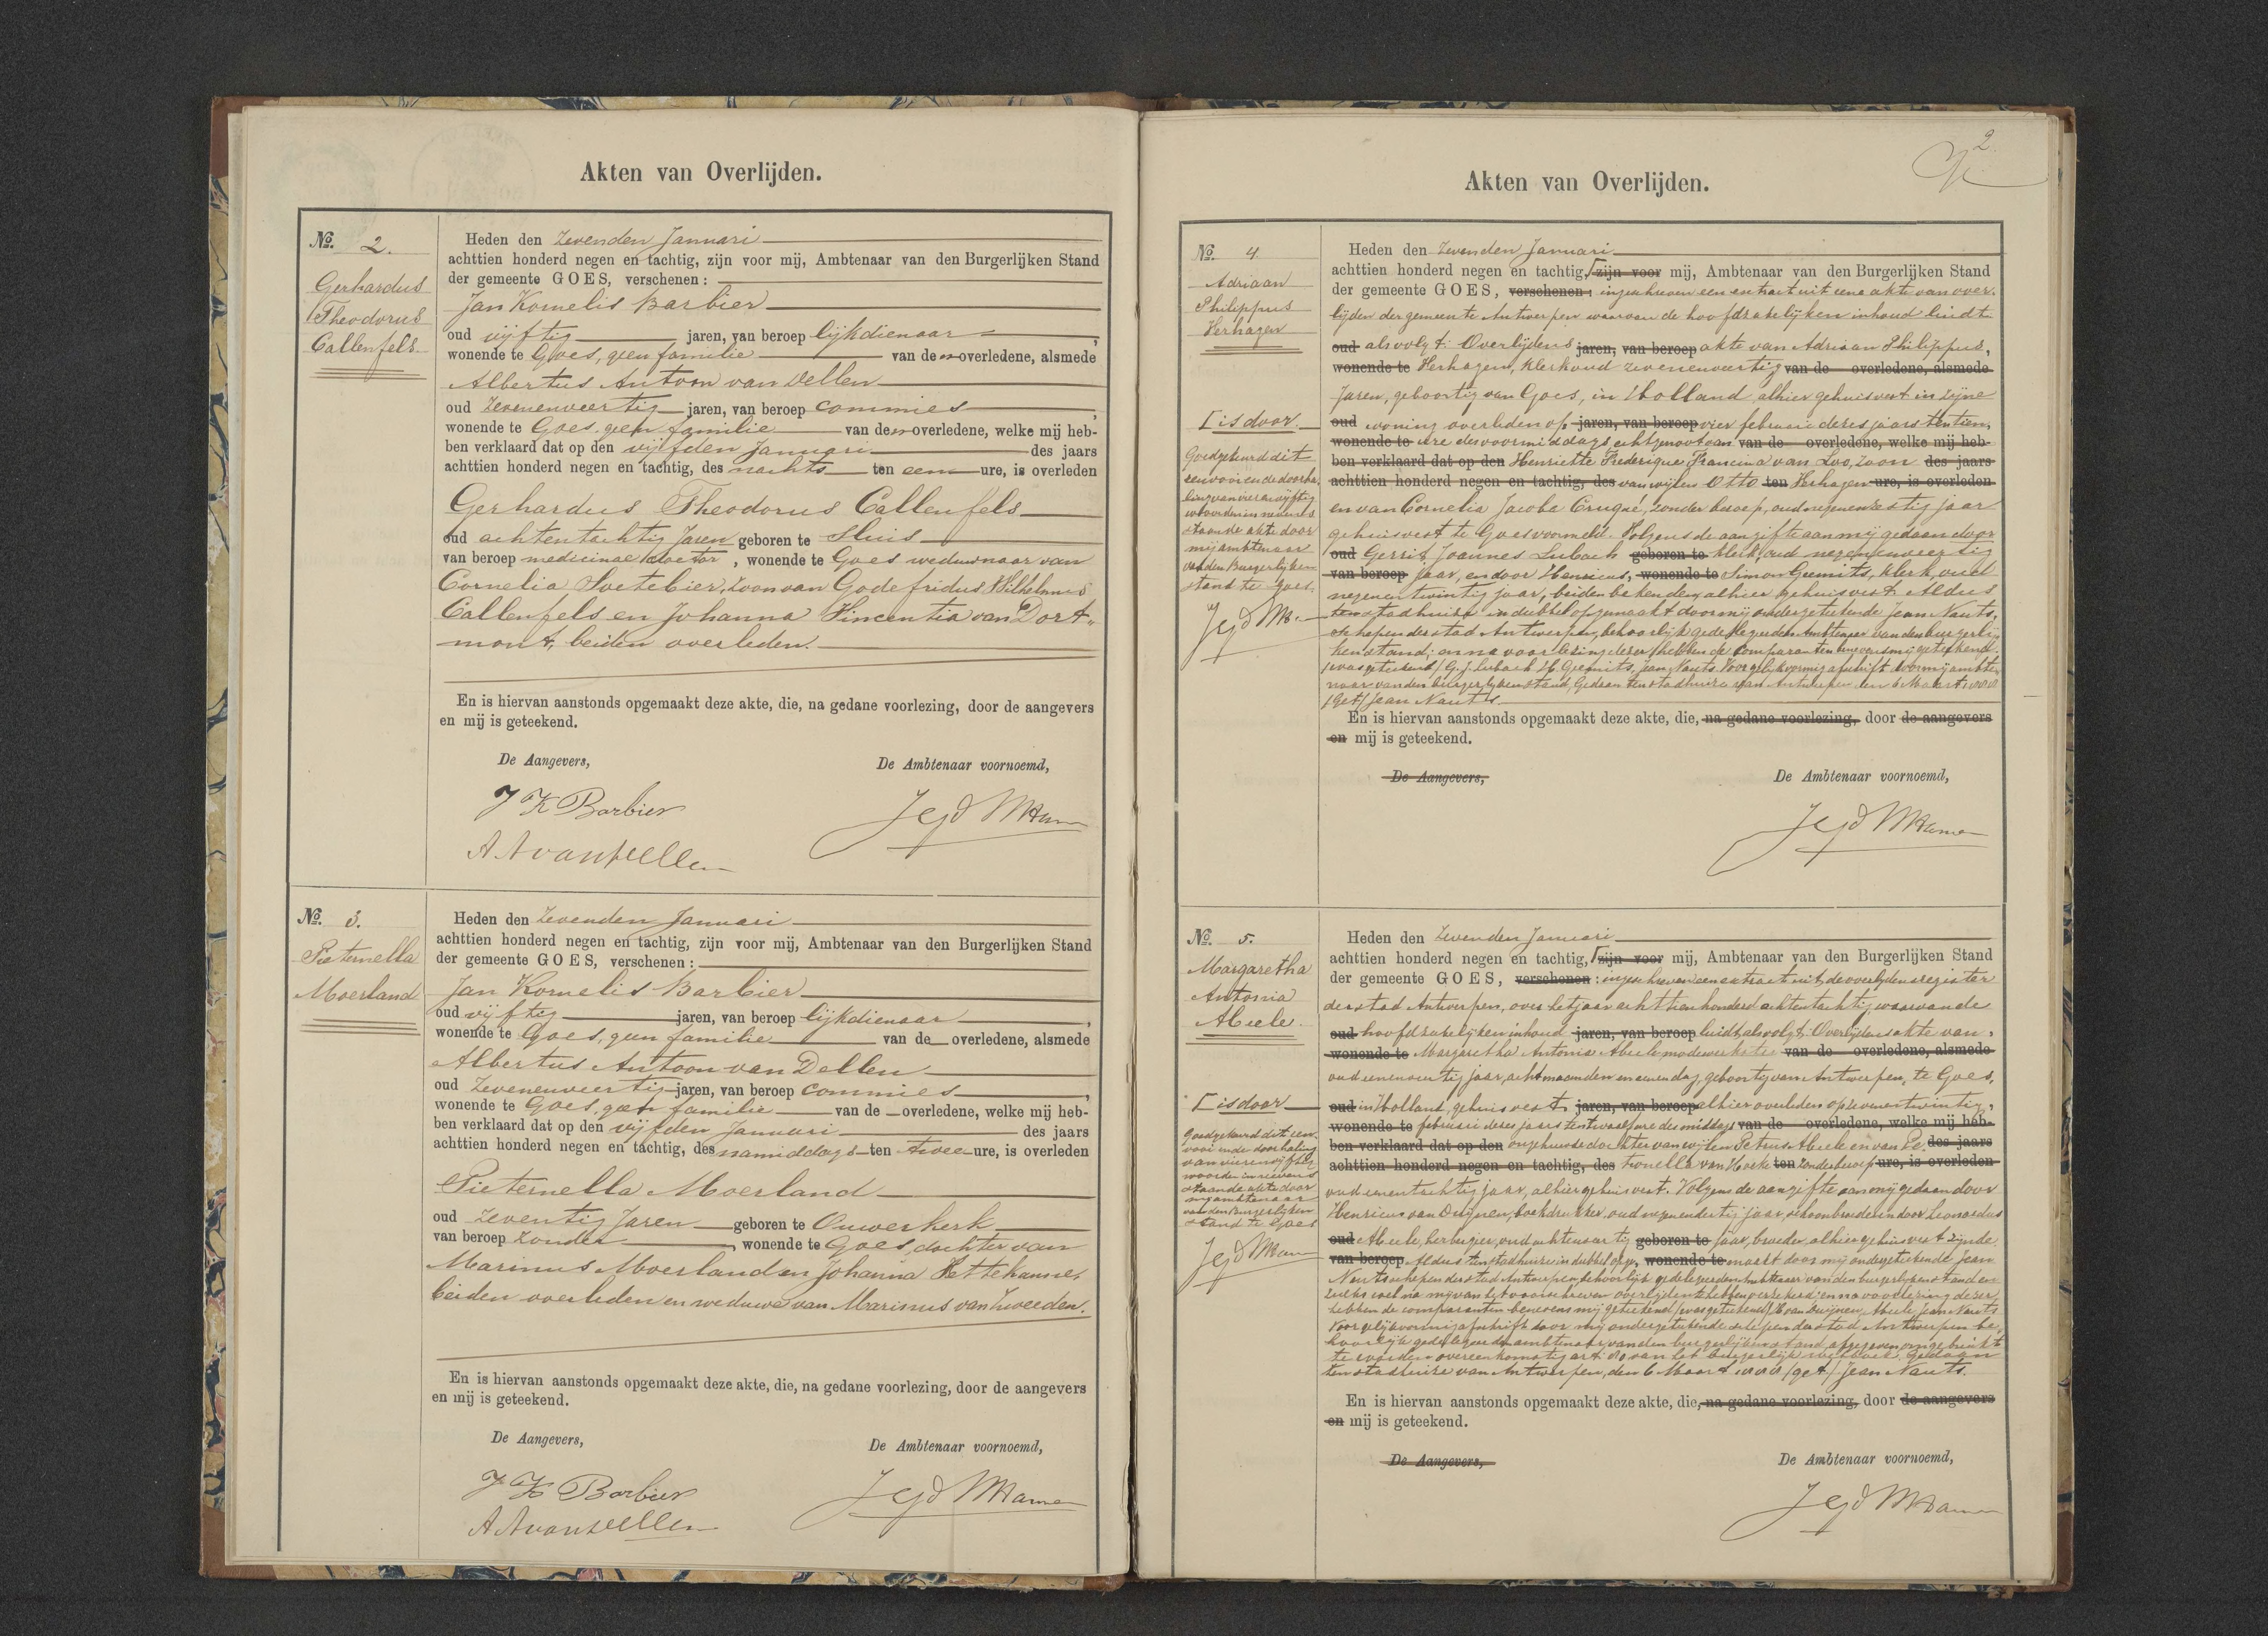 Akten van Overlijden.
No. 2.
Gerhardus
Theodorus
Callenfels
Heden den zevenden Januari
achttien honderd negen en tachtig, zijn voor mij, Ambtenaar van den Burgerlijken Stand
der gemeente GOES, verschenen:
Jan Kornelis Barbier
oud vijftig jaren, van beroep lijkdienaar,
wonende te Goes, geen familie van den overledene, alsmede
Albertus Antoon van Dellen
oud zevenenveertig jaren, van beroep commies,
wonende te Goes, geen familie van den overledene, welke mij heb-
ben verklaard dat op den vijfden Januari des jaars
achttien honderd negen en tachtig, des nachts ten een ure, is overleden
Gerhardus Theodorus Callenfels
oud achtentachtig Jaren geboren te Sluis
van beroep medicinae doctor, wonende te Goes weduwnaar van
Cornelia Soetebier, zoon van Godefridus Wilhelmus
Callenfels en Johanna Vincentia van Dort-
mont, beiden overleden.
En is hiervan aanstonds opgemaakt deze akte, die, na gedane voorlezing, door de aangevers
en mij is geteekend.
De Aangevers,
De Ambtenaar voornoemd,
J K Barbier
A A van Dellen
No. 3.
Pieternella
Moerland
Heden den zevenden Januari
achttien honderd negen en tachtig, zijn voor mij, Ambtenaar van den Burgerlijken Stand
der gemeente GOES, verschenen:
Jan Kornelis Barbier
oud vijftig jaren, van beroep lijkdienaar,
wonende te Goes, geen familie van de overledene, alsmede
Albertus Antoon van Dellen
oud zevenenveertig jaren, van beroep commies,
wonende te Goes, geen familie van de overledene, welke mij heb-
ben verklaard dat op den vijfden Januari des jaars
achttien honderd negen en tachtig, des namiddags ten twee ure, is overleden
Pieternella Moerland
oud zeventig Jaren geboren te Ouwerkerk
van beroep zonder, wonende te Goes, dochter van
Marinus Moerland en Johanna Hettekamer,
beiden overleden en weduwe van Marinus van Zweeden.
En is hiervan aanstonds opgemaakt deze akte, die, na gedane voorlezing, door de aangevers
en mij is geteekend.
De Aangevers,
De Ambtenaar voornoemd,
J K Barbier
A A van Dellen
2
Akten van Overlijden.
No. 4
Adriaan
Philippus
Verhagen
is door.
Goedgekeurd dit
een voor en de doorha-
ling van vier en vijftig
woorden in nevens-
staande akte door
mij ambtenaar
van den Burgerlijken
stand te Goes.
Heden den zevenden Januari
achttien honderd negen en tachtig, zijn voor mij, Ambtenaar van den Burgerlijken Stand
der gemeente GOES, verschenen: ingeschreven een extract uit eene akte van over-
lijden der gemeente Antwerpen waarvan de hoofdzakelijken inhoud luidt
oud als volgt: Overlijdens jaren, van beroep akte van Adriaan Philippus,
wonende te Verhagen, klerk oud zevenenveertig van de overledene, alsmede
Jaren, geboortig van Goes, in Holland alhier gehuisvest in zijne
oud woning overleden op jaren, van beroep vier februari dezes jaars ten tien
wonende te ure des voormiddags echtgenoot van van de overledene, welke mij heb-
ben verklaard dat op den Henriette Frederique Francina van Loo, zoon des jaars
achttien honderd negen en tachtig, des van wijlen Otto ten Verhagen ure, is overleden
en van Cornelia Jacoba Cruqué, zonder beroep, oud negenenzestig jaar
gehuisvest te Goes voormeld. Volgens de aangifte aan mij gedaan door
oud Gerrit Joannes Lubach geboren te klerk, oud negenenveertig
van beroep jaar, en door Henricus, wonende te Simon Geenits, klerk, oud
negenentwintig jaar, beiden bekenden, alhier gehuisvest. Aldus
ten stadhuize in dubbel opgemaakt door mij ondergeteekende Jean Nauts,
schepen der stad Antwerpen, behoorlijk gedelegeerden Ambtenaar van den burgerlij-
ken stand; en na voorlezing dezer hebben de Comparanten benevens mij geteekend.
/was geteekend/ G. J. Lubach, H Geenits, Jean Nauts. Voor gelijkvormig afschrift door mij ambte-
naar van den burgerlijken stand, Gedaan ten stadhuize van Antwerpen den 6 Maart 1888
/Get/ Jean Nauts
En is hiervan aanstonds opgemaakt deze akte, die, na gedane voorlezing, door de aangevers
en mij is geteekend.
De Aangevers,
De Ambtenaar voornoemd,
No. 5.
Margaretha
Antonia
Abeele.
is door
Goedgekeurd dit een
voor en de doorhaling
van vier en vijftig
woorden in nevens-
staande akte door
mij ambtenaar
van den Burgerlijken
stand te Goes
Heden den zevenden Januari
achttien honderd negen en tachtig, zijn voor mij, Ambtenaar van den Burgerlijken Stand
der gemeente GOES, verschenen: ingeschreven een extract uit de overlijdensregister
der stad Antwerpen, over het jaar achttien honderd achtentachtig waarvan de
oud hoofdzakelijken inhoud jaren, van beroep luidt als volgt: Overlijdensakte van,
wonende te Margaretha Antonia Abeele modewerkster van de overledene, alsmede
oud eenenveertig jaar, acht maanden en eenen dag, geboortig van Antwerpen, te Goes,
oud in Holland, gehuisvest, jaren, van beroep alhier overleden op zevenentwintig,
wonende te februari dezes jaars ten twaalf ure des middags van de overledene, welke mij heb-
ben verklaard dat op den ongehuwde dochter van wijlen Petrus Abeele en van Pe- des jaars
achttien honderd negen en tachtig, des tronella van Hoeke ten zonder beroep ure, is overleden
oud eenentachtig jaar, alhier gehuisvest. Volgens de aangifte aan mij gedaan door
Henricus van Duijnen, boekdrukker, oud negenendertig jaar, schoonbroeder en door Leonardus
oud Abeele, herbergier, oud achtenveertig geboren te jaar, broeder, alhier gehuisvest zijnde
van beroep Aldus ten stadhuize in dubbel opge- wonende te maakt door mij ondergeteekende Jean
Nauts schepen der stad Antwerpen, behoorlijk gedelegeerden Ambtenaar van den burgerlijken stand en
zulks wel na mij van het voorschreven overlijden te hebben verzekerd; en na voorlezing dezer
hebben de comparanten benevens mij geteekend /was geteekend/ H van Duijnen, Abeele, Jean Nauts
Voor gelijkvormig afschrift door mij ondergeteekende schepen der stad Antwerpen be-
hoorlijk gedelegeerden ambtenaar van den burgerlijken stand, afgegeven om gebruikt
te worden overeenkomstig art 80 van het burgerlijk wetboek. Gedaan
ten stadhuize van Antwerpen, den 6 Maart 1888 /get/ Jean Nauts.
En is hiervan aanstonds opgemaakt deze akte, die, na gedane voorlezing, door de aangevers
en mij is geteekend.
De Aangevers,
De Ambtenaar voornoemd,